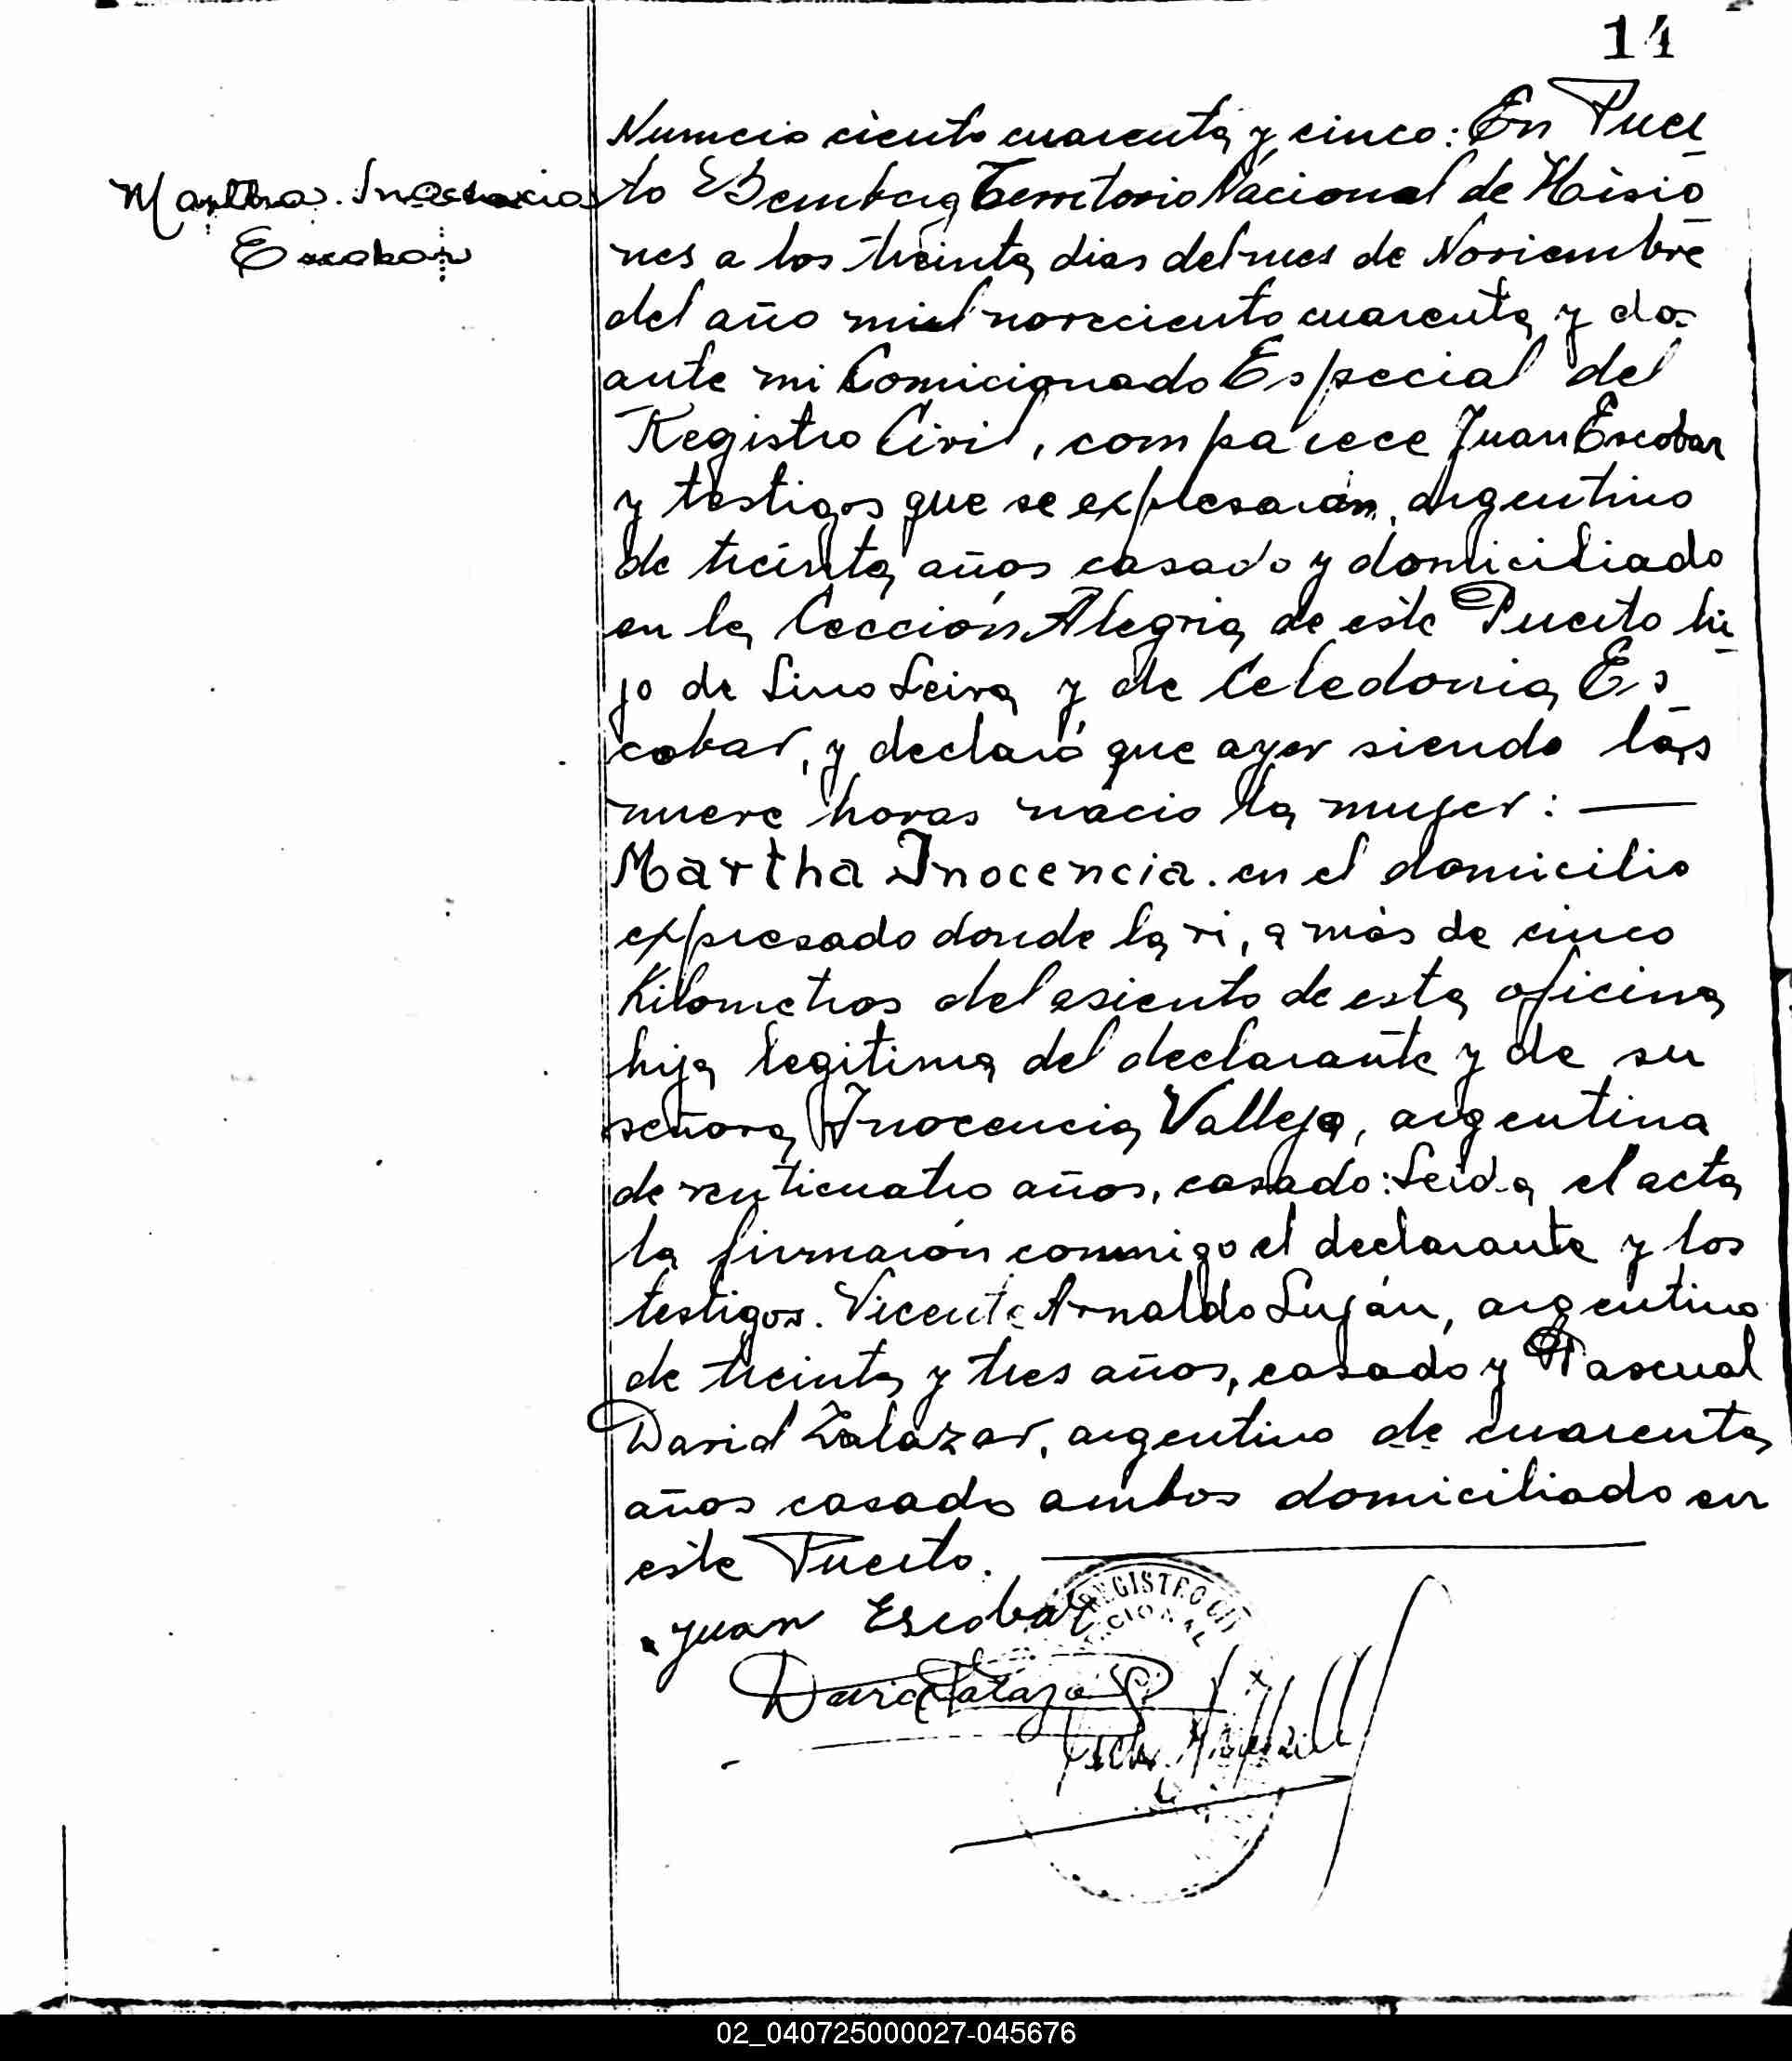 14
Martha Inocencia
Escobar
Numero ciento cuarenta y cinco: En Puer
to Bemberg Territorio Nacional de Misio
nes a los treinta dias del mes de Noviembre
del año mil noveciento cuarenta y dos
ante mi Comicionado Especial del
Registro Civil, comparece Juan Escobar
y testigos que se expresarán, argentino
de treinta años casado y domiciliado
en la Cección Alegria de este Puerto hi
jo de Lino Leiva y de Celedonia Es
cobar, y declaró que ayer siendo las
nueve horas nacio la mujer: —
Martha Inocencia. en el domicilio
expresado donde la vi, a más de cinco
Kilometros del asiento de esta oficina
hija legitima del declarante y de su
señora Inocencia Vallejo, argentina
de venticuatro años, casado: Leida el acta
la firmarón conmigo el declarante y los
testigos. Vicente Arnaldo Luján, argentino
de treinta y tres años, casado y Pascual
David Zalazar, argentino de cuarenta
años casado ambos domiciliado en
este Puerto.
Juan Escobar
REGISTRO CIVIL
NACIONAL
David Zalazar
02_040725000027-045676